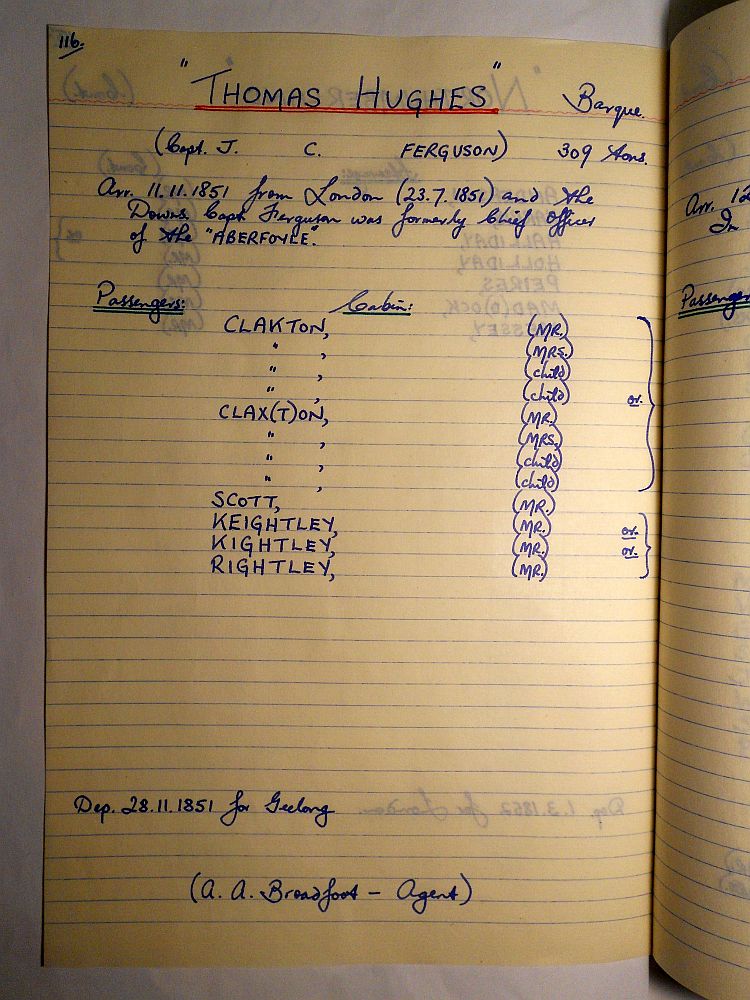 116.
"THOMAS HUGHES" Barque.
(Capt. J. C. FERGUSON) 309 tons.
Arr. 11.11.1851 from London (23.7.1851) and the
Downs. Capt. Ferguson was formerly Chief Officer
of the "ABERFOYLE".
Passengers: Cabin:
CLAKTON, (MR.)
" , (MRS.)
" , (child)
" , (child) or.
CLAX(T)ON, (MR.)
" , (MRS.)
" , (child)
" , (child)
SCOTT, (MR.)
KEIGHTLEY, (MR.) or.
KIGHTLEY, (MR.) or.
RIGHTLEY, (MR.)
Dep. 28.11.1851 for Geelong
(A. A. Broadfoot – Agent)
Arr. 12
In
Passenger